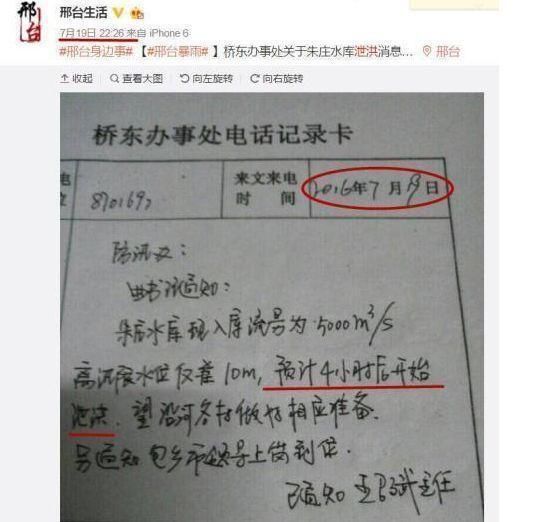 邢台
邢台生活
7月19日 22:26 来自 iPhone 6
#邢台身边事# 【#邢台暴雨#】桥东办事处关于朱庄水库泄洪消息... 邢台
收起 查看大图 向左旋转 向右旋转
桥东办事处电话记录卡
来文来电
时 间
2016年7月19日
防汛办:
通知:
朱庄水库现入库流量为5000m³/s
高汛限水位仅差10m,预计4小时后开始
泄洪.望沿河各村做好相应准备.
另通知包乡市领导上岗到位.
已通知 主任